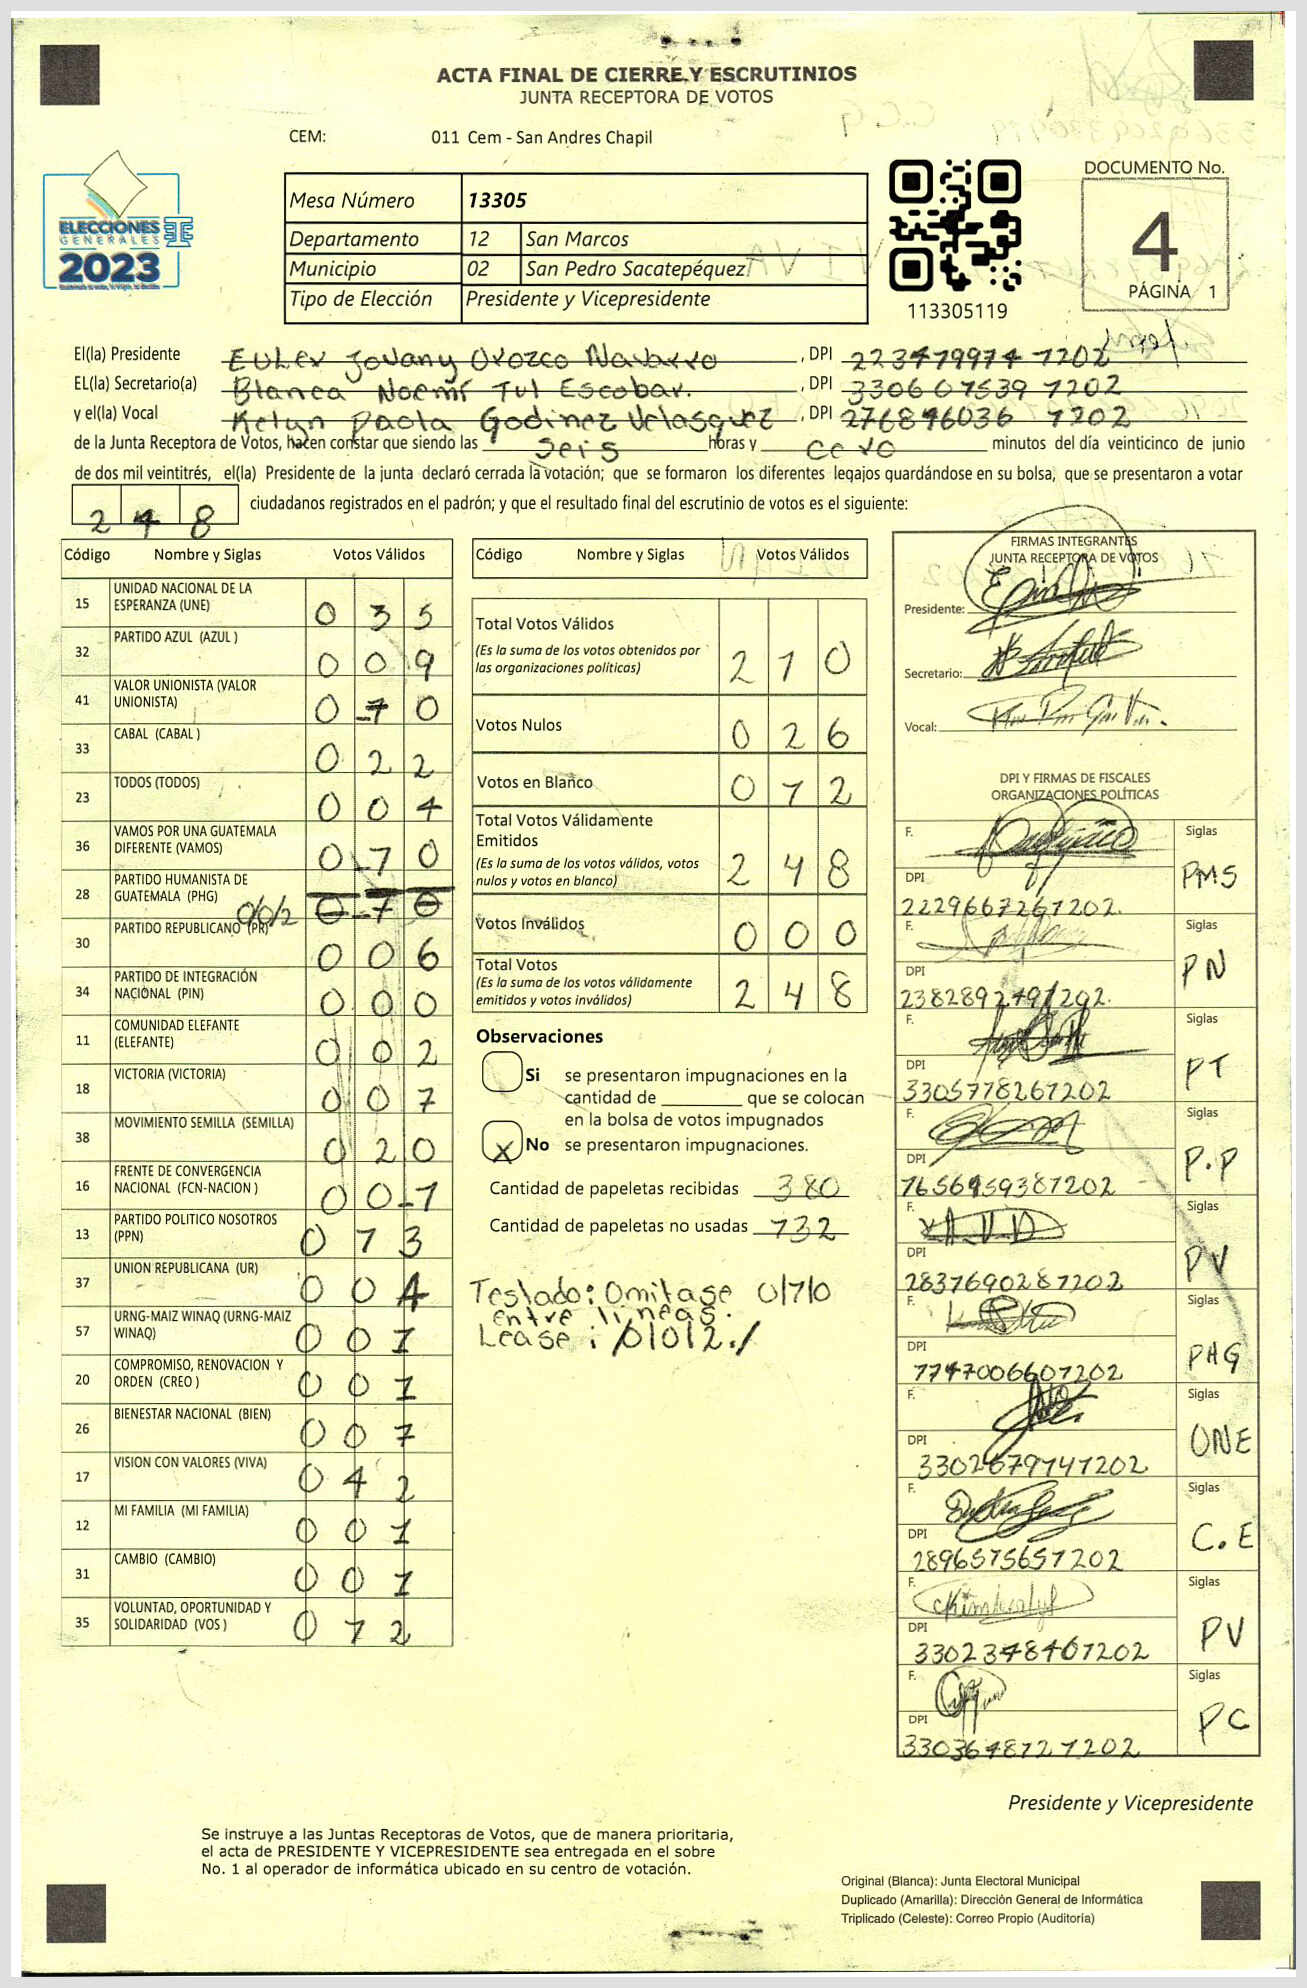 ACTA FINAL DE CIERRE Y ESCRUTINIOS
JUNTA RECEPTORA DE VOTOS
CEM: 011 Cem - San Andres Chapil
ELECCIONES
GENERALES
2023
Mesa Número 13305
Departamento 12 San Marcos
Municipio 02 San Pedro Sacatepéquez
Tipo de Elección Presidente y Vicepresidente
113305119
DOCUMENTO No.
4
PÁGINA 1
El(la) Presidente Euler Jovany Orozco Navarro , DPI 223479974 1202
EL(la) Secretario(a) Blanca Noemí Tul Escobar. , DPI 330607539 1202
y el(la) Vocal Kelyn Paola Godinez Velasquez , DPI 276896036 1202
de la Junta Receptora de Votos, hacen constar que siendo las seis horas y cero minutos del día veinticinco de junio
de dos mil veintitrés, el(la) Presidente de la junta declaró cerrada la votación; que se formaron los diferentes legajos guardándose en su bolsa, que se presentaron a votar
248 ciudadanos registrados en el padrón; y que el resultado final del escrutinio de votos es el siguiente:
Código Nombre y Siglas Votos Válidos
15 UNIDAD NACIONAL DE LA ESPERANZA (UNE) 0 3 5
32 PARTIDO AZUL (AZUL ) 0 0 9
41 VALOR UNIONISTA (VALOR UNIONISTA) 0 1 0
33 CABAL (CABAL ) 0 2 2
23 TODOS (TODOS) 0 0 4
36 VAMOS POR UNA GUATEMALA DIFERENTE (VAMOS) 0 1 0
28 PARTIDO HUMANISTA DE GUATEMALA (PHG) 0/0/2 0 1 0
30 PARTIDO REPUBLICANO (PR) 0 0 6
34 PARTIDO DE INTEGRACIÓN NACIONAL (PIN) 0 0 0
11 COMUNIDAD ELEFANTE (ELEFANTE) 0 0 2
18 VICTORIA (VICTORIA) 0 0 7
38 MOVIMIENTO SEMILLA (SEMILLA) 0 2 0
16 FRENTE DE CONVERGENCIA NACIONAL (FCN-NACION ) 0 0 1
13 PARTIDO POLITICO NOSOTROS (PPN) 0 1 3
37 UNION REPUBLICANA (UR) 0 0 4
57 URNG-MAIZ WINAQ (URNG-MAIZ WINAQ) 0 0 1
20 COMPROMISO, RENOVACION Y ORDEN (CREO ) 0 0 1
26 BIENESTAR NACIONAL (BIEN) 0 0 7
17 VISION CON VALORES (VIVA) 0 4 2
12 MI FAMILIA (MI FAMILIA) 0 0 1
31 CAMBIO (CAMBIO) 0 0 1
35 VOLUNTAD, OPORTUNIDAD Y SOLIDARIDAD (VOS ) 0 1 2
Código Nombre y Siglas Votos Válidos
Total Votos Válidos 2 1 0
(Es la suma de los votos obtenidos por
las organizaciones políticas)
Votos Nulos 0 2 6
Votos en Blanco 0 1 2
Total Votos Válidamente
Emitidos 2 4 8
(Es la suma de los votos válidos, votos
nulos y votos en blanco)
Votos Inválidos 0 0 0
Total Votos 2 4 8
(Es la suma de los votos válidamente
emitidos y votos inválidos)
Observaciones
Si se presentaron impugnaciones en la
cantidad de ________ que se colocan
en la bolsa de votos impugnados
X No se presentaron impugnaciones.
Cantidad de papeletas recibidas 380
Cantidad de papeletas no usadas 132
Testado: Omitase 0/1/0
entre lineas.
Lease: /0/0/2./
FIRMAS INTEGRANTES
JUNTA RECEPTORA DE VOTOS
Presidente:
Secretario:
Vocal:
DPI Y FIRMAS DE FISCALES
ORGANIZACIONES POLÍTICAS
F. Siglas PMS
DPI 2229667261202.
F. Siglas PN
DPI 2382892491202.
F. Siglas PT
DPI 3305778261202
F. Siglas P.P
DPI 1656959381202
F. Siglas PV
DPI 2837690281202
F. Siglas PHG
DPI 1747006601202
F. Siglas UNE
DPI 3302679141202
F. Siglas C.E
DPI 2896575651202
F. Siglas PV
DPI 3302348461202
F. Siglas PC
DPI 3303648121202
Presidente y Vicepresidente
Se instruye a las Juntas Receptoras de Votos, que de manera prioritaria,
el acta de PRESIDENTE Y VICEPRESIDENTE sea entregada en el sobre
No. 1 al operador de informática ubicado en su centro de votación.
Original (Blanca): Junta Electoral Municipal
Duplicado (Amarilla): Dirección General de Informática
Triplicado (Celeste): Correo Propio (Auditoría)